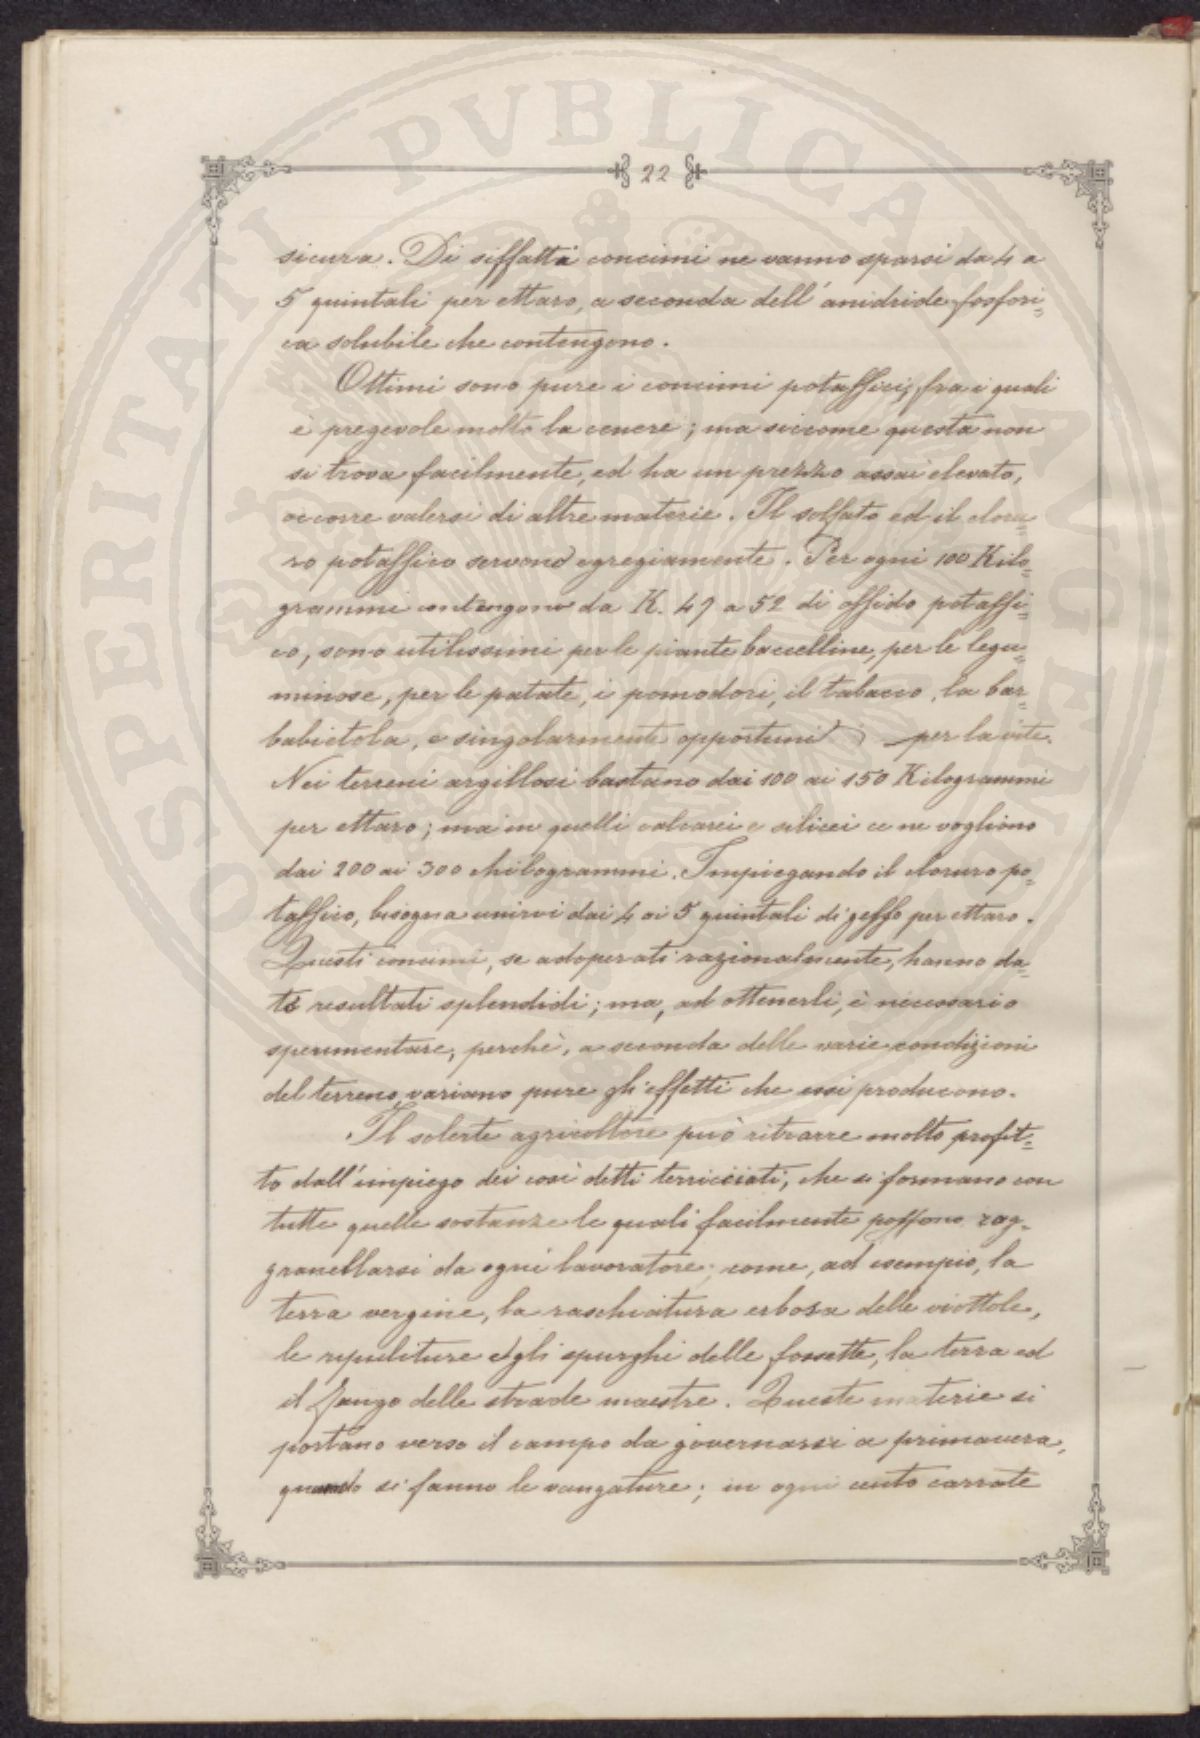 22
sicura. Di siffatti concimi ne vanno sparsi da 4 a
5 quintali per ettaro, a seconda dell'anidride fosfori=
ca solubile che contengono.
Ottimi sono pure i concimi potassici, fra i quali
è pregevole molto la cenere; ma siccome questa non
si trova facilmente, ed ha un prezzo assai elevato,
occorre valersi di altre materie. Il solfato ed il cloru=
ro potassico servono egregiamente. Per ogni 100 Kilo=
grammi contengono da K. 49 a 52 di ossido potassi=
co, sono utilissimi per le piante baccelline, per le legu=
minose, per le patate, i pomodori, il tabacco, la bar=
babietola, e singolarmente opportuni per la vite.
Nei terreni argillosi bastano dai 100 ai 150 Kilogrammi
per ettaro; ma in quelli calcarei e silicei ce ne vogliono
dai 200 ai 300 chilogrammi. Impiegando il cloruro po=
tassico, bisogna unirvi dai 4 ai 5 quintali di gesso per ettaro.
Questi concimi, se adoperati razionalmente, hanno da=
to resultati splendidi; ma, ad ottenerli, è necessario
sperimentare, perchè, a seconda delle varie condizioni
del terreno, variano pure gli effetti che essi producono.
Il solerte agricoltore può ritrarre molto profit=
to dall'impiego dei così detti terricciati, che si formano con
tutte quelle sostanze le quali facilmente possono rag=
granellarsi da ogni lavoratore; come, ad esempio, la
terra vergine, la raschiatura erbosa delle viottole,
le ripuliture e gli spurghi delle fossette, la terra ed
il fango delle strade maestre. Queste materie si
portano verso il campo da governarsi a primavera,
quando si fanno le vangature; in ogni cento carrate
SPERITATI PVBLICAE AVGENDAE